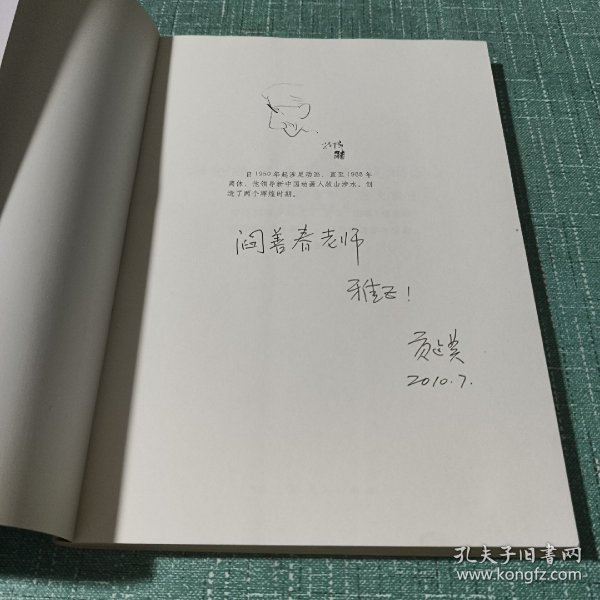 自1950年起涉足动画,直至1988年
离休,他领导新中国动画人跋山涉水,创
造了两个辉煌时期。
阎善春老师
雅正!
贡建英
2010.7.
孔夫子旧书网
www.kongfz.com